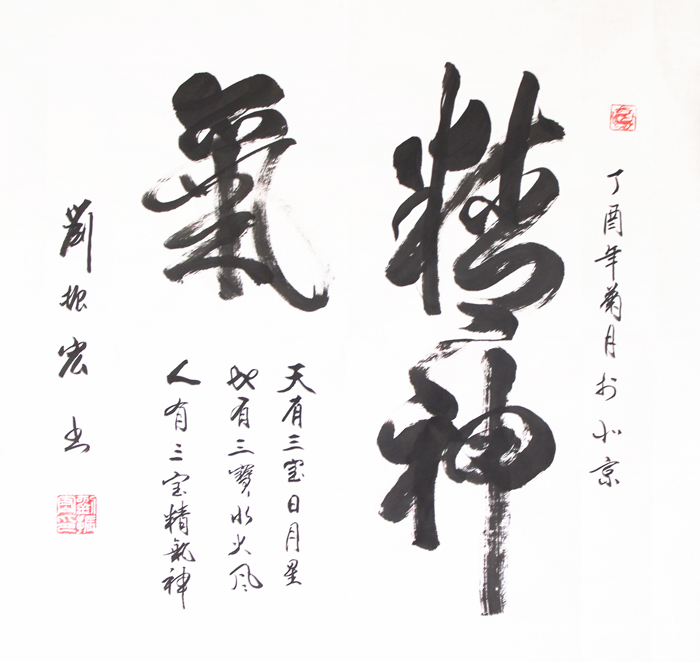 丁酉年菊月於北京
精神
氣
天有三宝日月星
地有三寶水火风
人有三宝精氣神
劉振宏书